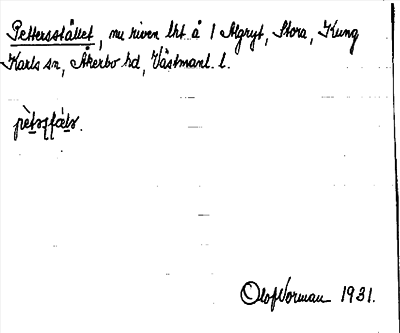 Pettersstället, nu riven lht å 1 Algryt, Stora, Kung
Karls sn, Åkerbo hd, Västmanl. l.
Olof Vorman 1931.